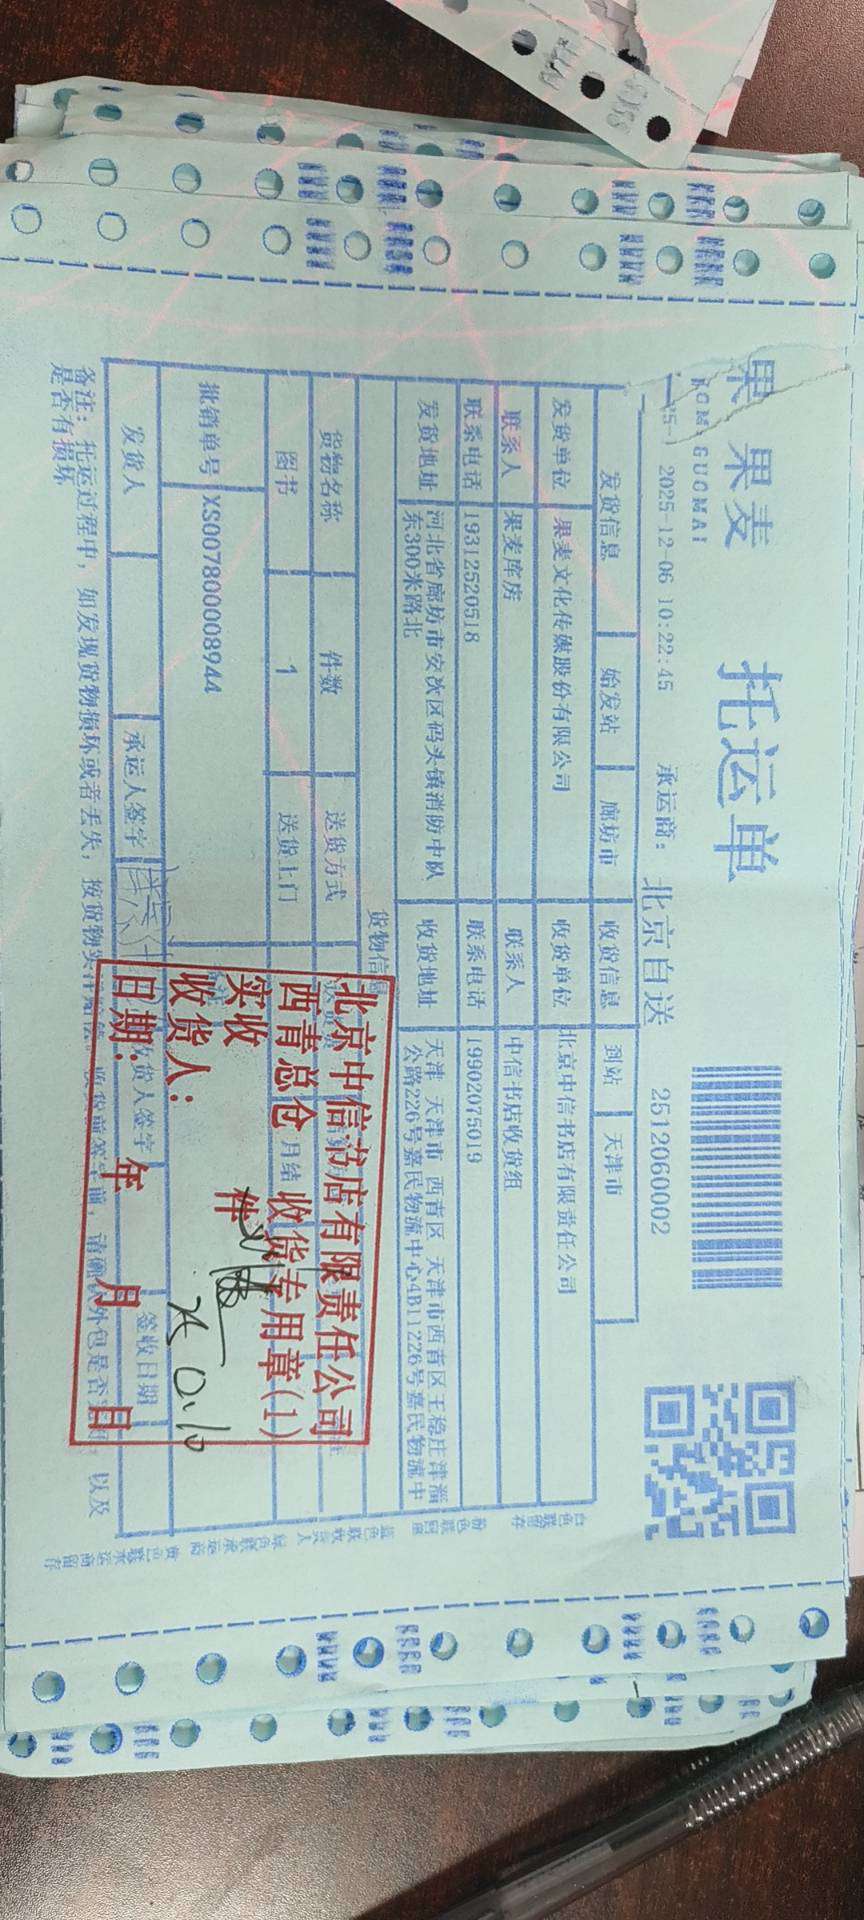 果麦
果麦
GUOMAI
托运单
2512060002
2025-12-06 10:22:45
承运商：
北京自送
发货信息
始发站
廊坊市
收货信息
到站
天津市
发货单位
果麦文化传媒股份有限公司
收货单位
北京中信书店有限责任公司
联系人
果麦库房
联系人
中信书店收货组
联系电话
19312520518
联系电话
19902075019
发货地址
河北省廊坊市安次区码头镇消防中队东300米路北
收货地址
天津 天津市 西青区 天津市西青区王稳庄津淄公路226号嘉民物流中心4B11226号嘉民物流中
货物信息
货物名称
件数
送货方式
图书
1
送货上门
月结
批销单号
XS007800008944
发货人
承运人签字
收货人签字
签收日期
备注：托运过程中，如发现货物损坏或者丢失，按货物实
是否有损坏
以及
北京中信书店有限责任公司
西青总仓 收货专用章(1)
实收 件
收货人：
日期： 年 月 日